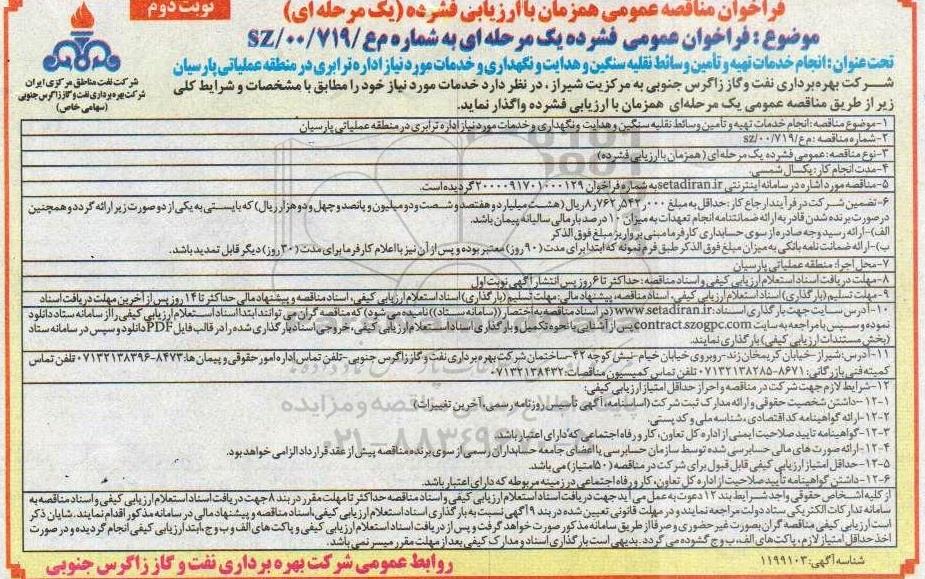 نوبت دوم
فراخوان مناقصه عمومی همزمان با ارزیابی فشرده (یک مرحله ای)
موضوع : فراخوان عمومی فشرده یک مرحله ای به شماره م ع /SZ/۰۰/۷۱۹
تحت عنوان : انجام خدمات تهیه و تأمین وسائط نقلیه سنگین و هدایت و نگهداری و خدمات مورد نیاز اداره ترابری در منطقه عملیاتی پارسیان
شرکت نفت مناطق مرکزی ایران
شرکت بهره برداری نفت و گاز زاگرس جنوبی
(سهامی خاص)
شرکت بهره برداری نفت و گاز زاگرس جنوبی به مرکزیت شیراز ، در نظر دارد خدمات مورد نیاز خود را مطابق با مشخصات و شرایط کلی
زیر از طریق مناقصه عمومی یک مرحله‌ای همزمان با ارزیابی فشرده واگذار نماید.
۱-موضوع مناقصه : انجام خدمات تهیه و تأمین وسائط نقلیه سنگین و هدایت و نگهداری و خدمات مورد نیاز اداره ترابری در منطقه عملیاتی پارسیان
۲-شماره مناقصه : م ع/SZ/۰۰/۷۱۹
۳-نوع مناقصه: عمومی فشرده یک مرحله ای ( همزمان با ارزیابی فشرده)
۴-مدت انجام کار : یکسال شمسی.
۵- مناقصه مورد اشاره در سامانه اینترنتی setadiran.ir به شماره فراخوان ۲۰۰۰۰۹۱۷۰۱۰۰۰۱۲۹ گردیده است.
۶-تضمین شرکت در فرآیند ارجاع کار: حداقل به مبلغ ۸,۷۶۲,۵۴۲,۰۰۰ ریال (هشت میلیارد و هفتصد و شصت و دو میلیون و پانصد و چهل و دو هزار ریال) که بایستی به یکی از دو صورت زیر ارائه گردد و همچنین
در صورت برنده شدن قادر به ارائه ضمانتنامه انجام تعهدات به میزان ۱۰ درصد بار مالی سالیانه پیمان باشد.
الف)-ارائه رسید وجه صادره از سوی حسابداری کارفرما مبنی بر واریز مبلغ فوق الذکر
ب)-ارائه ضمانت نامه بانکی به میزان مبلغ فوق الذکر طبق فرم نمونه که ابتدا برای مدت (۹۰ روز) معتبر بوده و پس از آن نیز با اعلام کارفرما برای مدت (۳۰ روز) دیگر قابل تمدید باشد.
۷-محل اجرا: منطقه عملیاتی پارسیان
۸-مهلت دریافت اسناد استعلام ارزیابی کیفی و اسناد مناقصه: حداکثر تا ۶ روز پس انتشار آگهی نوبت اول
۹-مهلت تسلیم (بارگذاری) اسناد استعلام ارزیابی کیفی، اسناد مناقصه، پیشنهاد مالی: مهلت تسلیم (بارگذاری) اسناد استعلام ارزیابی کیفی، اسناد مناقصه و پیشنهاد مالی حداکثر تا ۱۴ روز پس از آخرین مهلت دریافت اسناد
۱۰-آدرس سایت جهت بارگذاری اسناد: www.setadiran.ir (در اسناد مناقصه به اختصار ((سامانه ستاد)) نامیده می شود) که مناقصه گران می توانند ابتدا اسناد استعلام ارزیابی کیفی را از سامانه ستاد دانلود
نموده و سپس با مراجعه به سایت contract.szogpc.com پس از آشنایی با نحوه تکمیل و بارگذاری اسناد استعلام ارزیابی کیفی، خروجی اسناد بارگذاری شده را در قالب فایل PDF دانلود و سپس در سامانه ستاد
(بخش مستندات ارزیابی کیفی) بارگذاری نمایند.
۱۱-آدرس: شیراز -خیابان کریمخان زند- روبروی خیابان خیام -نبش کوچه ۴۲-ساختمان شرکت بهره برداری نفت و گاز زاگرس جنوبی- تلفن تماس اداره امور حقوقی و پیمان ها: ۸۴۷۳-۰۷۱۳۲۱۳۸۳۹۶ تلفن تماس
کمیته فنی بازرگانی: ۸۶۷۱-۰۷۱۳۲۱۳۸۲۸۵ تلفن تماس کمیسیون مناقصات: ۰۷۱۳۲۱۳۸۴۳۲
۱۲-شرایط لازم جهت شرکت در مناقصه و احراز حداقل امتیاز ارزیابی کیفی:
۱-۱۲-داشتن شخصیت حقوقی و ارائه مدارک ثبت شرکت (اساسنامه، آگهی تأسیس روزنامه رسمی، آخرین تغییرات)
۲-۱۲-ارائه گواهینامه کد اقتصادی، شناسه ملی و کد پستی.
۳-۱۲-گواهینامه تایید صلاحیت ایمنی از اداره کل تعاون، کار و رفاه اجتماعی که دارای اعتبار باشد.
۴-۱۲-ارائه صورت های مالی حسابرسی شده توسط سازمان حسابرسی یا اعضای جامعه حسابداران رسمی از سوی برنده مناقصه پیش از عقد قرارداد الزامی خواهد بود.
۵-۱۲-حداقل امتیاز ارزیابی کیفی قابل قبول برای شرکت در مناقصه (۵۰ امتیاز) می باشد.
۶-۱۲-داشتن گواهینامه تأیید صلاحیت از اداره کل تعاون، کار و رفاه اجتماعی در زمینه مربوطه که دارای اعتبار باشد.
از کلیه اشخاص حقوقی واجد شرایط بند ۱۲ دعوت به عمل می آید جهت دریافت اسناد استعلام ارزیابی کیفی و اسناد مناقصه حداکثر تا مهلت مقرر در بند ۸ جهت دریافت اسناد استعلام ارزیابی کیفی و اسناد مناقصه به
سامانه تدارکات الکتریکی ستاد دولت مراجعه نمایند و در مهلت قانونی تعیین شده در بند ۹ آگهی نسبت به بارگذاری اسناد استعلام ارزیابی کیفی، اسناد مناقصه و پیشنهاد مالی در سامانه مذکور اقدام نمایند. شایان ذکر
است ارزیابی کیفی مناقصه گران بصورت غیر حضوری و صرفا از طریق سامانه مذکور صورت خواهد گرفت و پس از دریافت اسناد استعلام ارزیابی کیفی و پاکت های الف، ب و ج، ابتدا ارزیابی کیفی انجام گردیده و در صورت
اخذ حداقل امتیاز لازم، پاکت های الف، ب و ج گشوده می گردد. بدیهی است بارگذاری اسناد و مدارک کیفی بعد از مهلت مقرر میسر نمی باشد.
شناسه آگهی: ۱۱۹۹۱۰۳
روابط عمومی شرکت بهره برداری نفت و گاز زاگرس جنوبی